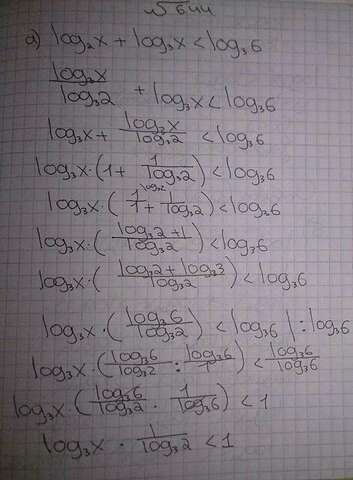 № 644
а) log₂x + log₃x < log₃6
log₃x/log₃2 + log₃x < log₃6
log₃x + log₃x/log₃2 < log₃6
log₃x·(1 + 1/log₃2) < log₃6
log₃x·(1/1 + 1/log₃2) < log₃6
log₃x·((log₃2+1)/log₃2) < log₃6
log₃x·((log₃2 + log₃3)/log₃2) < log₃6
log₃x·(log₃6/log₃2) < log₃6 | : log₃6
log₃x·(log₃6/log₃2 : log₃6/1) < log₃6/log₃6
log₃x·(log₃6/log₃2 · 1/log₃6) < 1
log₃x · 1/log₃2 < 1